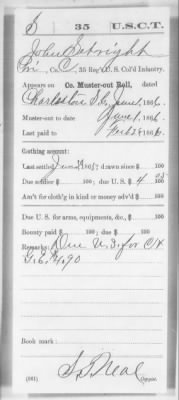 S 35 U.S.C.T.
John
Pri, Co. C, 35 Reg't U. S. Col'd Infantry.
Appears on
Co. Muster-out Roll, dated
Charleston S.C. June 1, 1866.
Muster-out to date June 1, 1866.
Last paid to 1866.
Clothing account:
Last settled 186 ; drawn since $ 100
Due soldier $ 100; due U. S. $ 4 05/100
Am't for cloth'g in kind or money adv'd $ 100
Due U. S. for arms, equipments, &c., $ 100
Bounty paid $ 100; due $ 100
Remarks: Due U.S. for C &
G.E. $4.70
Book mark:
(861) Copyist.